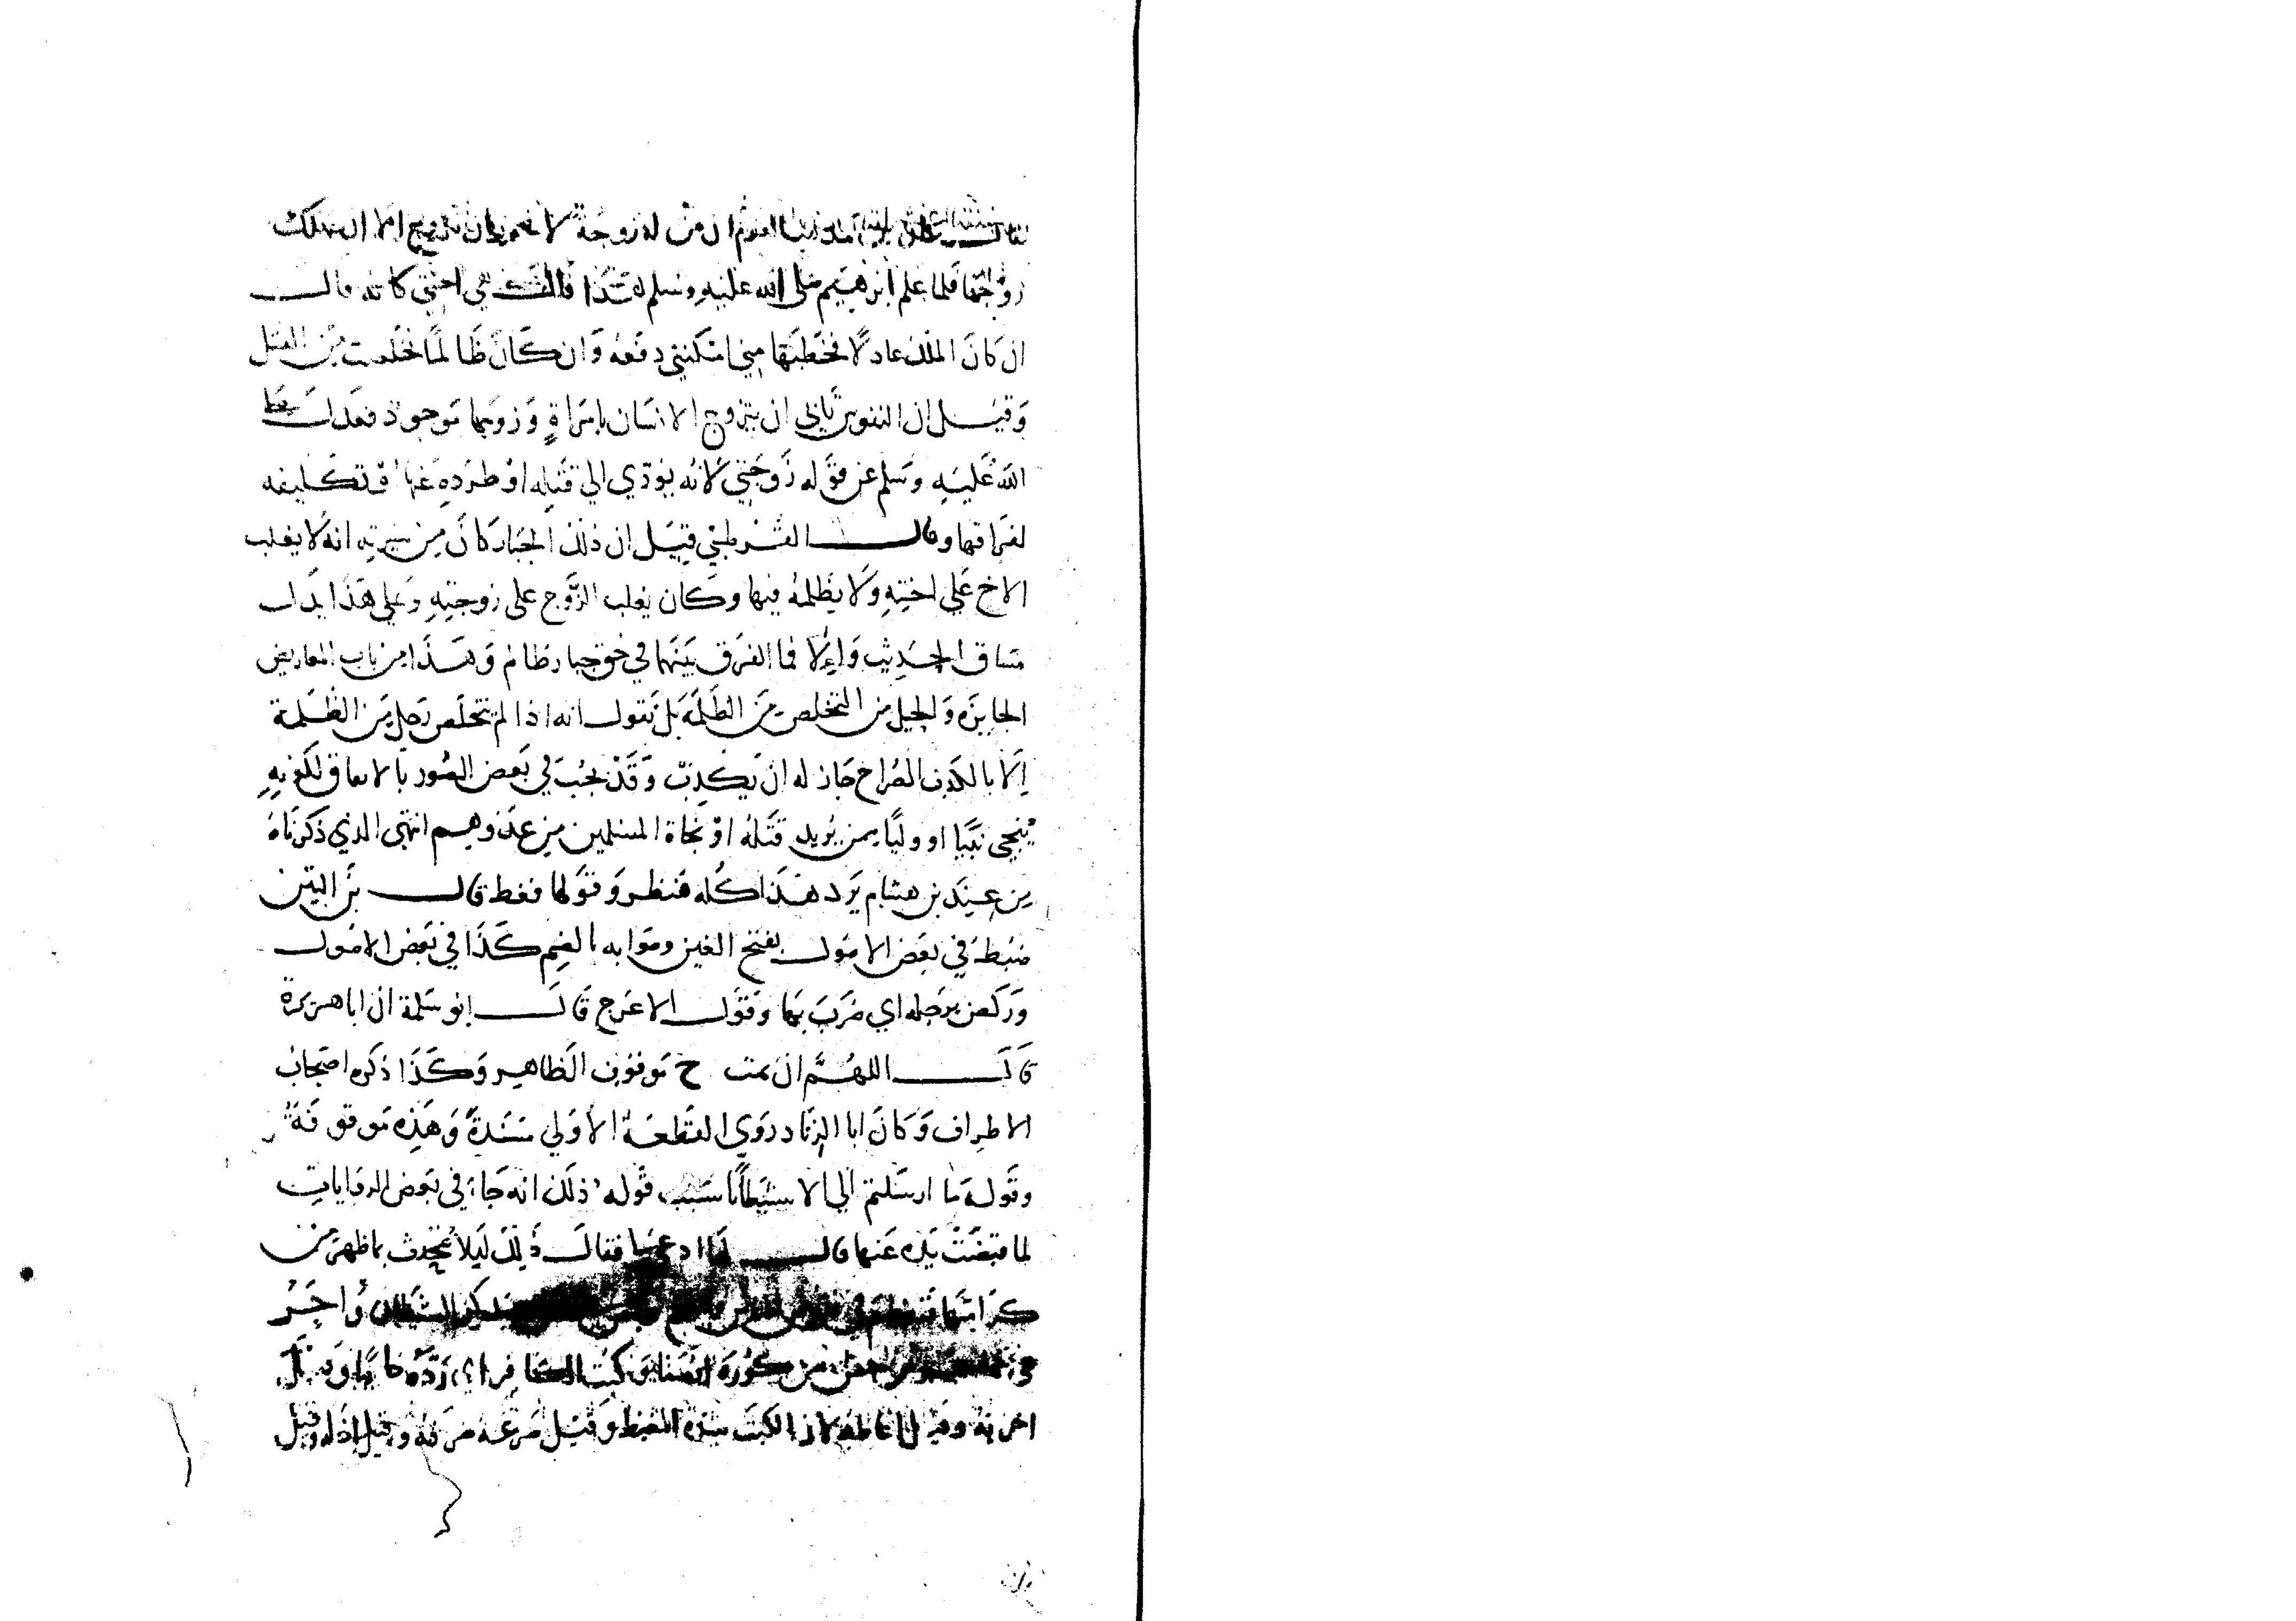 القوم ان من له زوجة لا يجوز ان تتزوج الا ان يهلك
زوجها فلما علم ابرهيم صلى الله عليه وسلم هذا قال هي اختي كانه قال
ان كان الملك عادلا فخطبها مني امكنني دفعه وان كان ظالما تخلصت من القتل
وقيل ان النفوس تابى ان يتزوج الانسان بامراة وزوجها موجود فعدل صلى
الله عليه وسلم عن قوله زوجتي لانه يودي الي قتله او طرده عنها او تكليفه
لفراقها وقال القرطبي قيل ان ذلك الجبار كان من سيرته انه لا يغلب
الاخ علي اخته ولا يظلمه فيها وكان يغلب الزوج على زوجته وعلي هذا يدل
مساق الحديث والا فما الفرق بينهما في حق جبار ظالم وهذا من باب المعاريض
الجايزه والحيل من التخلص من الظلمة بل نقول انه اذا لم يتخلص رجل من الظلمة
الا بالكذب الصراح جاز له ان يكذب وقد يجب في بعض الصور بالاتفاق لكونه
ينجي نبيا او وليا ممن يريد قتله او نجاة المسلمين من عدوهم انتهى الذي ذكرناه
من عند بن هشام يرد هذا كله فينظر وقولها فغط قال بن التين
ضبط في بعض الاصول بفتح الغين وصوابه الضم كذا في بعض الاصول
وركض برجله اي ضرب بها وقول الاعرج قال ابو سلمة ان ابا هريرة
قال اللهم ان يمت ح موقوف الظاهر وكذا ذكره اصحاب
الاطراف وكان ابا الزناد روي القطعة الاولي مسندة وهذه موقوفة
وقوله ما ارسلتم الي الا شيطانا سبب قوله ذلك انه جاء في بعض الروايات
لما قبضت يده عنها قال لها ادعي فقال ذلك ليلا يتحدث بما ظهر من
كرامتها فتعظم في الشيطان واجر
من كبت الكافر اي رده خايبا وقيل
اخزنه وقيل اغاظه لان الكبت شدة الغيظ وقيل صرعه صرفه وقيل اذله وقيل